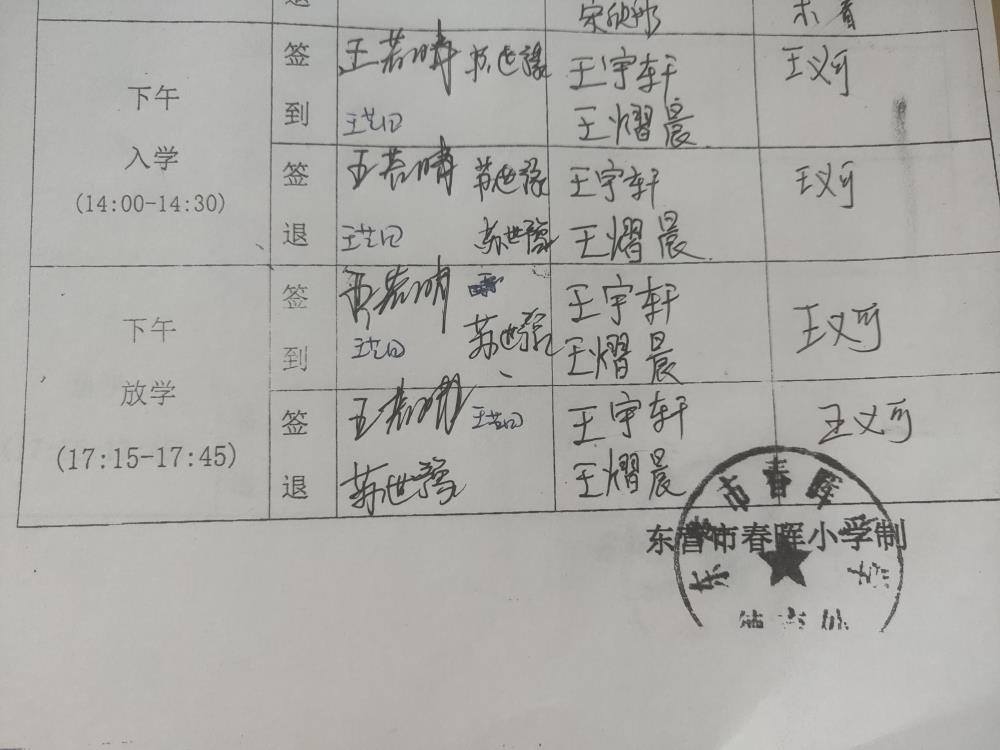 退
宋欣彤
下午
入学
(14:00-14:30)
签到
王若晴 苏世豫
王艺曰
王宇轩
王熠晨
王义可
签退
王若晴 苏世豫
王艺曰 苏世豫
王宇轩
王熠晨
王义可
下午
放学
(17:15-17:45)
签到
王若晴
王艺曰 苏世豫
王宇轩
王熠晨
王义可
签退
王若晴 王艺曰
苏世豫
王宇轩
王熠晨
王义可
东营市春晖小学制
市春晖
东